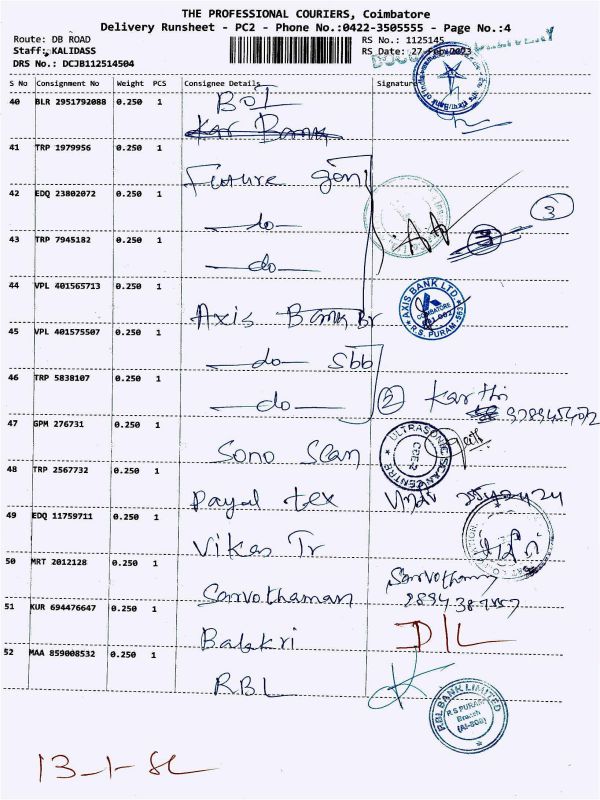 THE PROFESSIONAL COURIERS, Coimbatore
Delivery Runsheet - PC2 - Phone No.:0422-3505555 - Page No.:4
Route: DB ROAD
RS No.: 1125145
Staff: KALIDASS
RS Date: 27-Feb-2023
DRS No.: DCJB112514504
S No Consignment No Weight PCS Consignee Details Signature
40 BLR 2951792088 0.250 1 BOI
Kar Bank
41 TRP 1979956 0.250 1 Future gen
42 EDQ 23802072 0.250 1 —do—
3
43 TRP 7945182 0.250 1 —do—
3
44 VPL 401565713 0.250 1 Axis Bank Br
AXIS BANK LTD. COIMBATORE R.S. PURAM
45 VPL 401575507 0.250 1 —do— Sbb
46 TRP 5838107 0.250 1 —do—
Karthi
47 GPM 276731 0.250 1 Sono Scan
ULTRASONIC SCAN CENTRE
48 TRP 2567732 0.250 1 Payal tex
49 EDQ 11759711 0.250 1 Vikas Tr
50 MRT 2012128 0.250 1 Sarvothaman
51 KUR 694476647 0.250 1 Balakri
D/L
52 MAA 859008532 0.250 1 RBL
RBL BANK LIMITED R S PURAM Branch
13-1-82